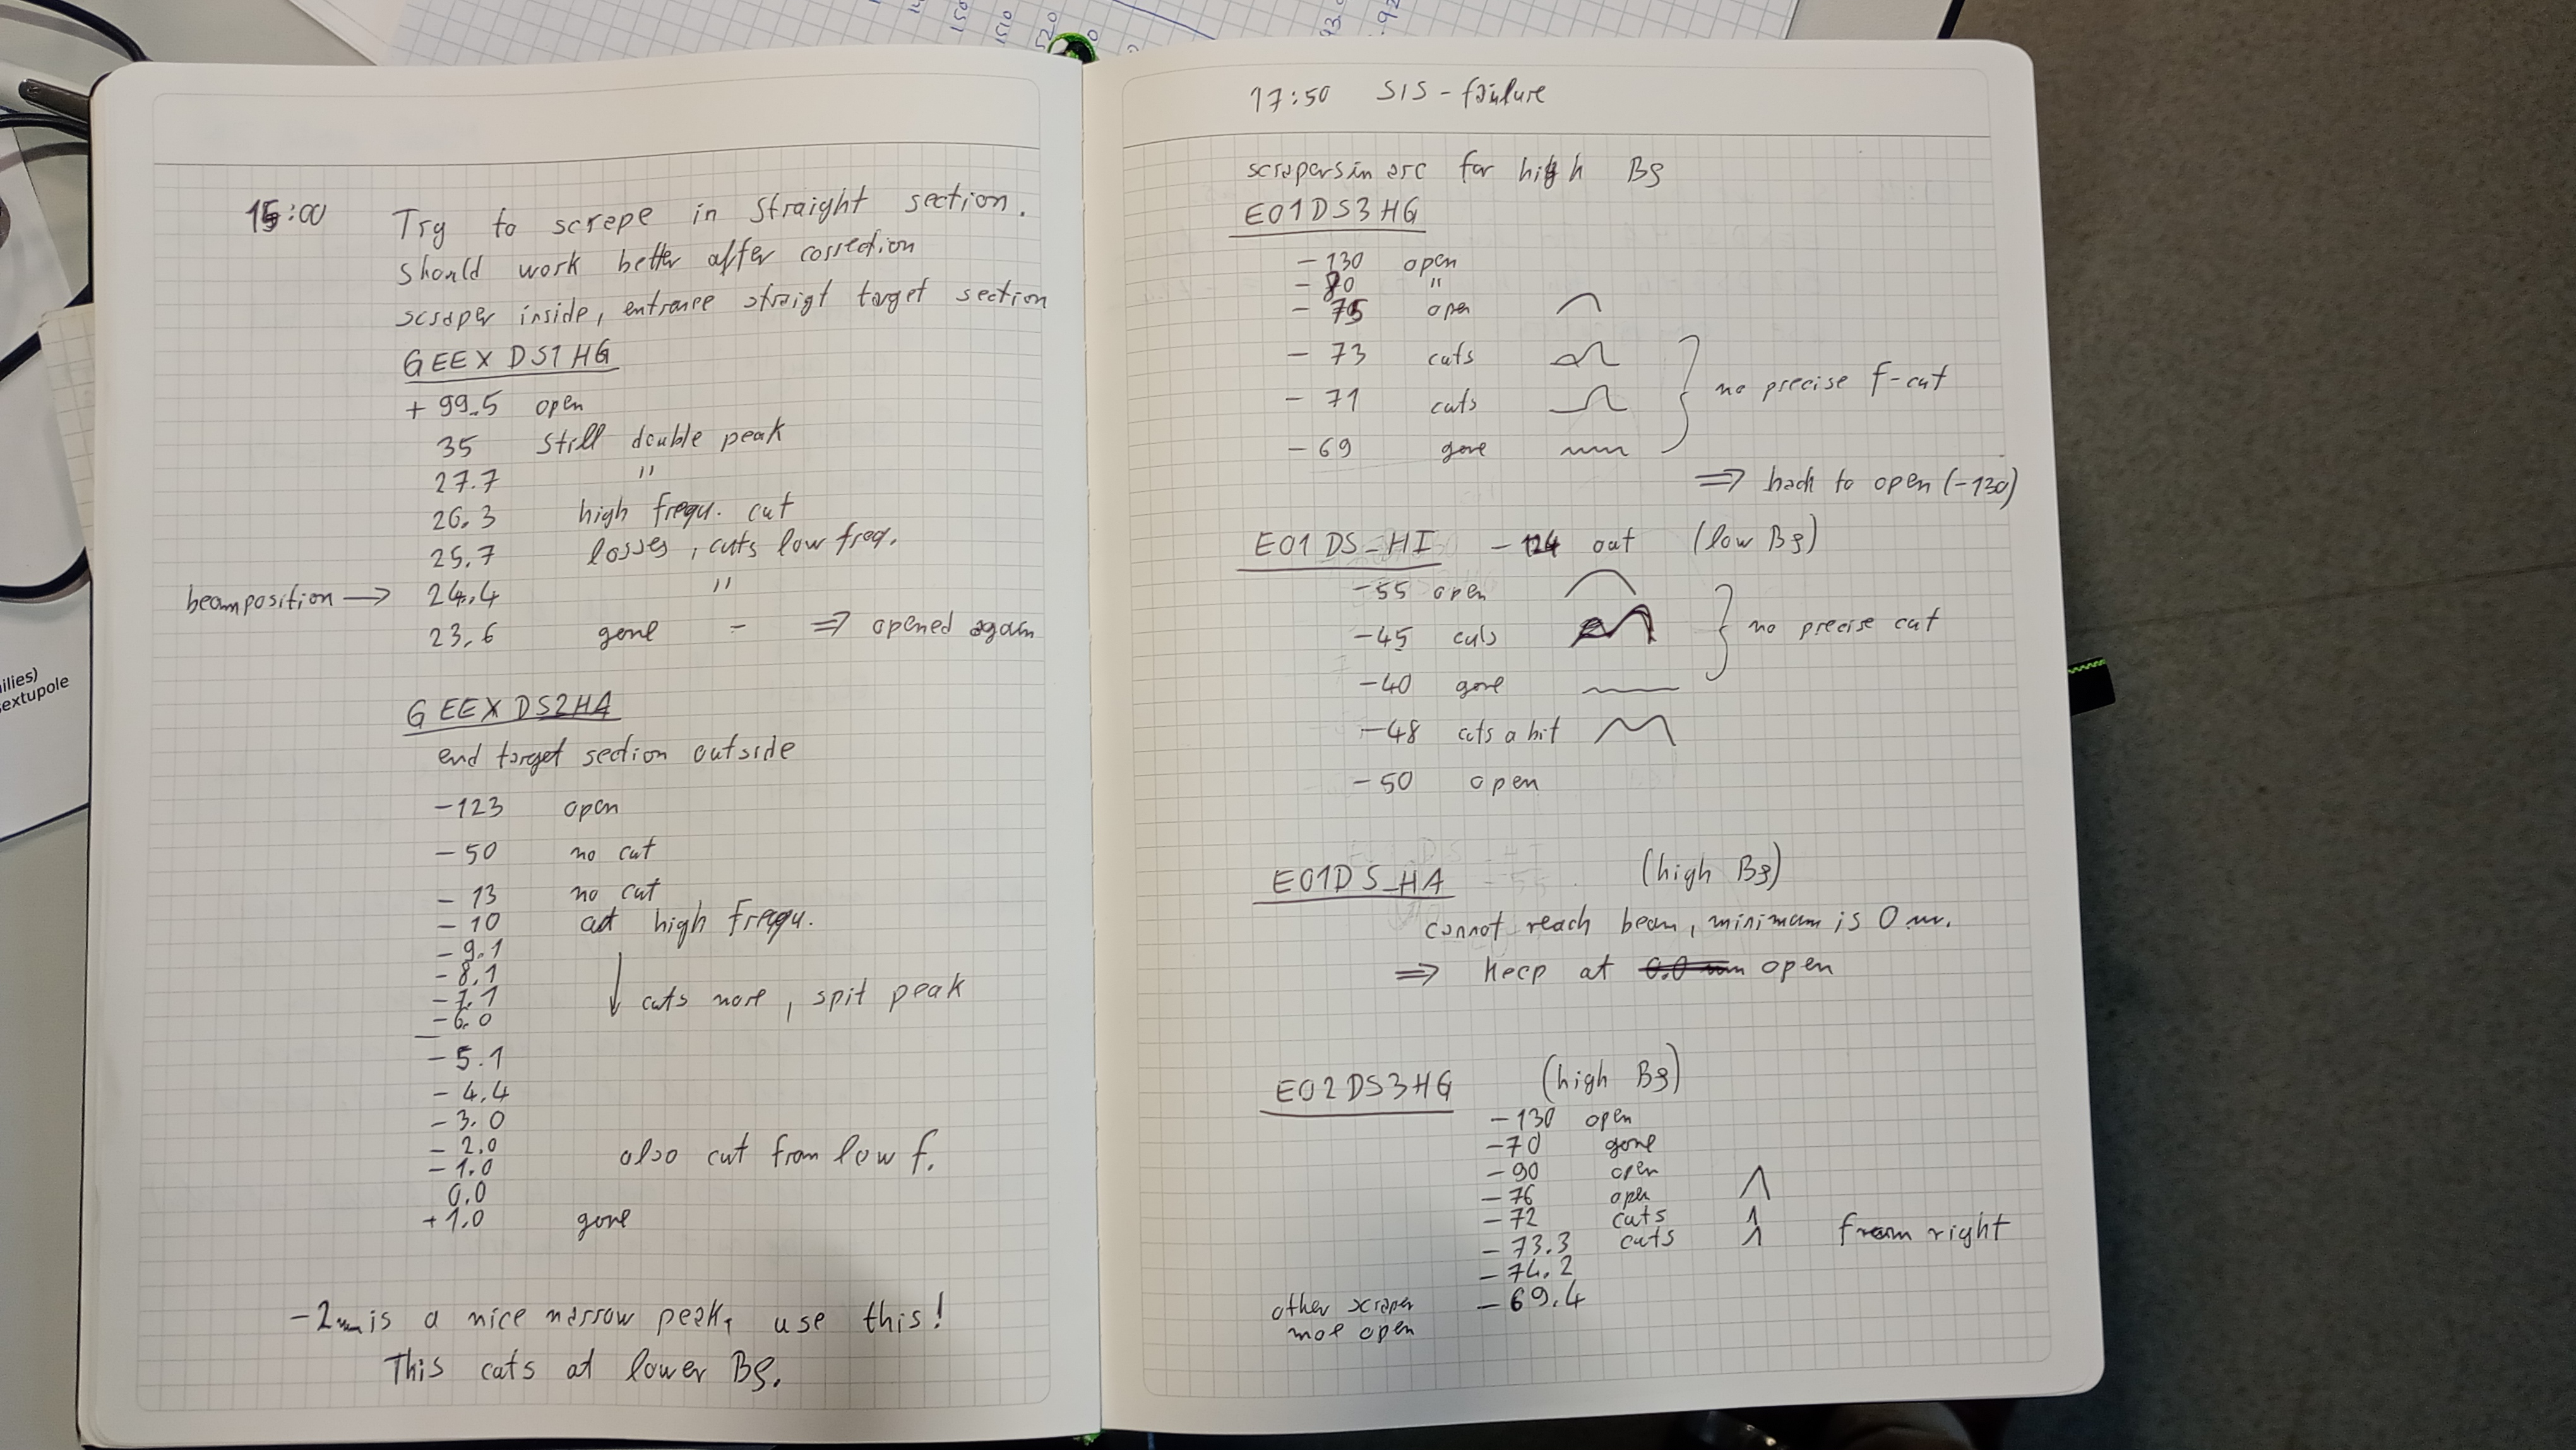 15:00 Try to scrape in straight section.
should work better after correction
scraper inside, entrance straigt target section
GEEXDS1HG
+ 99.5 open
35 still double peak
27.7 "
26.3 high frequ. cut
25.7 losses, cuts low freq.
beamposition → 24.4 "
23.6 gone - ⇒ opened again
GEEXDS2HA
end target section outside
-123 open
- 50 no cut
- 13 no cut
- 10 cut high frequ.
- 9.1
- 8.1
- 7.1 ↓ cuts more, spit peak
- 6.0
- 5.1
- 4.4
- 3.0
- 2.0 also cut from low f.
- 1.0
0.0
+ 1.0 gone
-2mm is a nice narrow peak, use this!
This cuts at lower Bρ.
17:50 SIS-failure
scrapers in arc for high Bρ
E01DS3HG
- 130 open
- 80 "
- 75 open
- 73 cuts
- 71 cuts } no precise f-cut
- 69 gone
⇒ back to open (-130)
E01DS_HI -124 out (low Bρ)
-55 open
-45 cuts } no precise cut
-40 gone
-48 cuts a bit
-50 open
E01DS_HA (high Bρ)
cannot reach beam, minimum is 0 mm.
⇒ Keep at 0.0 mm open
E02DS3HG (high Bρ)
-130 open
-70 gone
-90 open
-76 open
-72 cuts
-73.3 cuts from right
-74.2
other scraper -69.4
more open
ilies)
extupole
150
1510
520
93.
.92